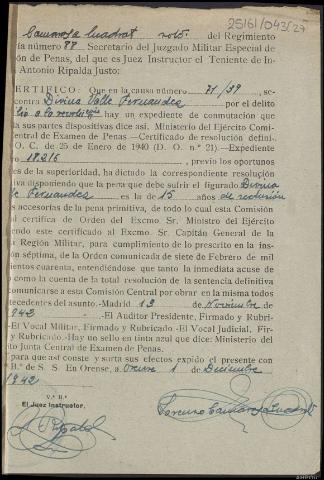 25161/043(27
Camarasa Cuadrat sold. del Regimiento
ía número 88 Secretario del Juzgado Militar Especial de
ón de Penas, del que es Juez Instructor el Teniente de In-
Antonio Ripalda Justo:
ERTIFICO: Que en la causa número 71/39, se-
contra Divina Valle Fernandez por el delito
hay un expediente de conmutación que
sus partes dispositivas dice así. Ministerio del Ejército Comi-
entral de Examen de Penas.—Certificado de resolución defini-
O. C. de 25 de Enero de 1940 (D. O. n.º 21).—Expediente
, previo los oportunos
es de la superioridad, ha dictado la correspondiente resolución
iva disponiendo que la pena que debe sufrir el figurado Divina
Fernandez es la de 15 años de reclusión
s accesorias de la pena primitiva, de todo lo cual esta Comisión
al certifica de Orden del Excmo. Sr. Ministro del Ejército
endo este certificado al Excmo. Sr. Capitán General de la
Región Militar, para cumplimiento de lo prescrito en la ins-
ón séptima, de la Orden comunicada de siete de Febrero de mil
ientos cuarenta, entendiéndose que tanto la inmediata acuse de
como la cuenta de total resolución de la sentencia definitiva
comunicarse a esta Comisión Central por obrar en la misma todos
tecedentes del asunto.-Madrid 13 de Noviembre de
942 .-El Auditor Presidente, Firmado y Rubri-
-El Vocal Militar, Firmado y Rubricado.-El Vocal Judicial, Fir-
y Rubricado.-Hay un sello en tinta azul que dice: Ministerio del
ito Junta Central de Examen de Penas.
para que así conste y surta sus efectos expido el presente con
B.º de S. S. En Orense, a Orense 1 de Diciembre
1942
V.º B.º
El Juez Instructor,
A Ripalda
Lorenzo Camarasa Cuadrat